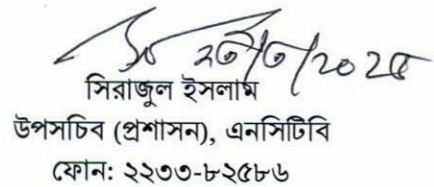 সিরাজুল ইসলাম
উপসচিব (প্রশাসন), এনসিটিবি
ফোন: ২২৩৩-৮২৫৮৬